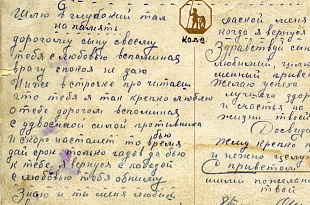 Шлю в глубокий тыл
на память
дорогому сыну своему
тебя с любовью вспоминая
врагу спокоя не даю
Пишу в строчке прочитаеш
что тебя я так крепко люблю
о тебе дорогом вспоминая
с удвоенной силой противника
бью
и скоро настанет то время
дай срок только гадов добью
к тебе я вернуся с победой
с любовью тебя обниму
Знаю и ты меня любиш
коле
лаской меня
когда я вернуся
Здравствуй сын
менный привет
Желаю успеха
лучшего здоро
и счастья на
жизни твоей
Досвидан
Жму крепко
и нежно целую
С приветом
твой